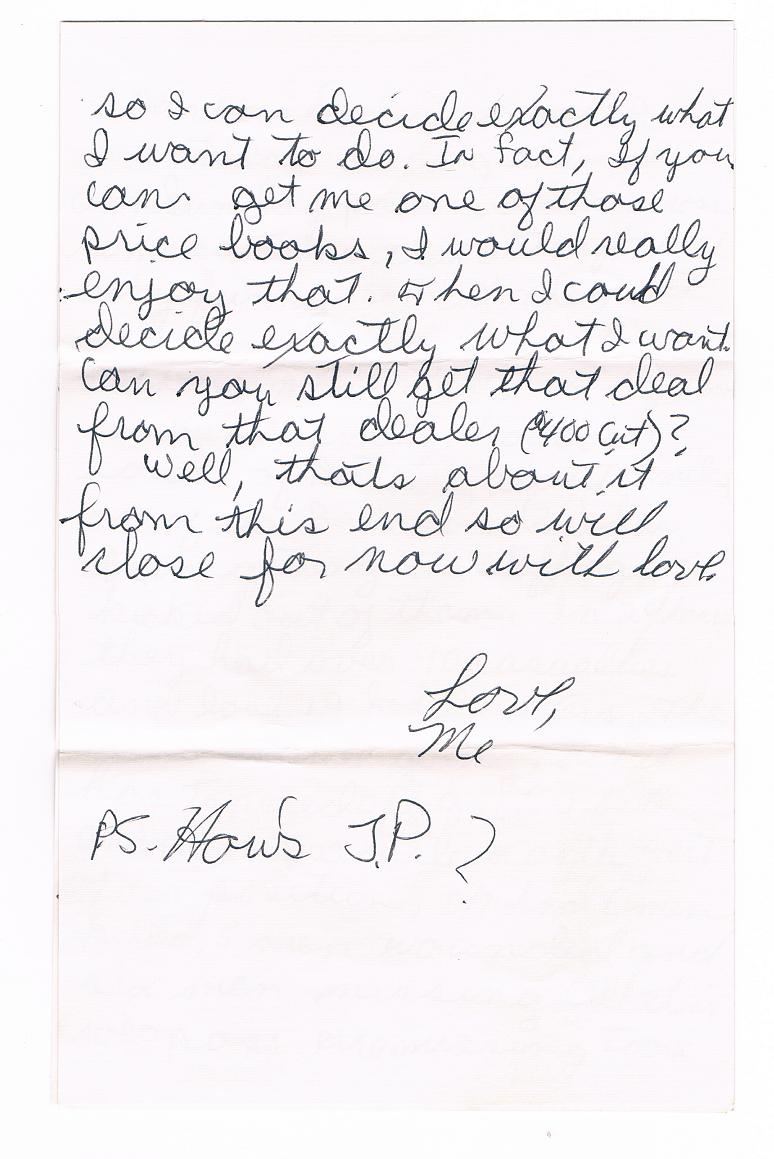 so I can decide exactly what
I want to do. In fact, If you
can get me one of those
price books, I would really
enjoy that. Then I could
decide exactly what I want.
Can you still get that deal
from that dealer ($400 cut)?
Well, thats about it
from this end so will
close for now with love.
Love,
Me
PS. How's J.P.?